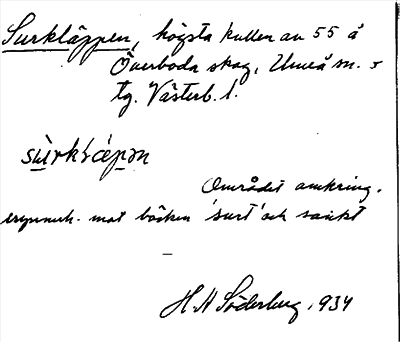 Surkläppen, högsta kullen av 55 å
Överboda skog, Umeå sn. o
tg. Västerb. l.
sùrkʹz̀ǽpən
Området omkring,
mot bäcken 'surt' och sankt
–
H. H Söderberg, 1934